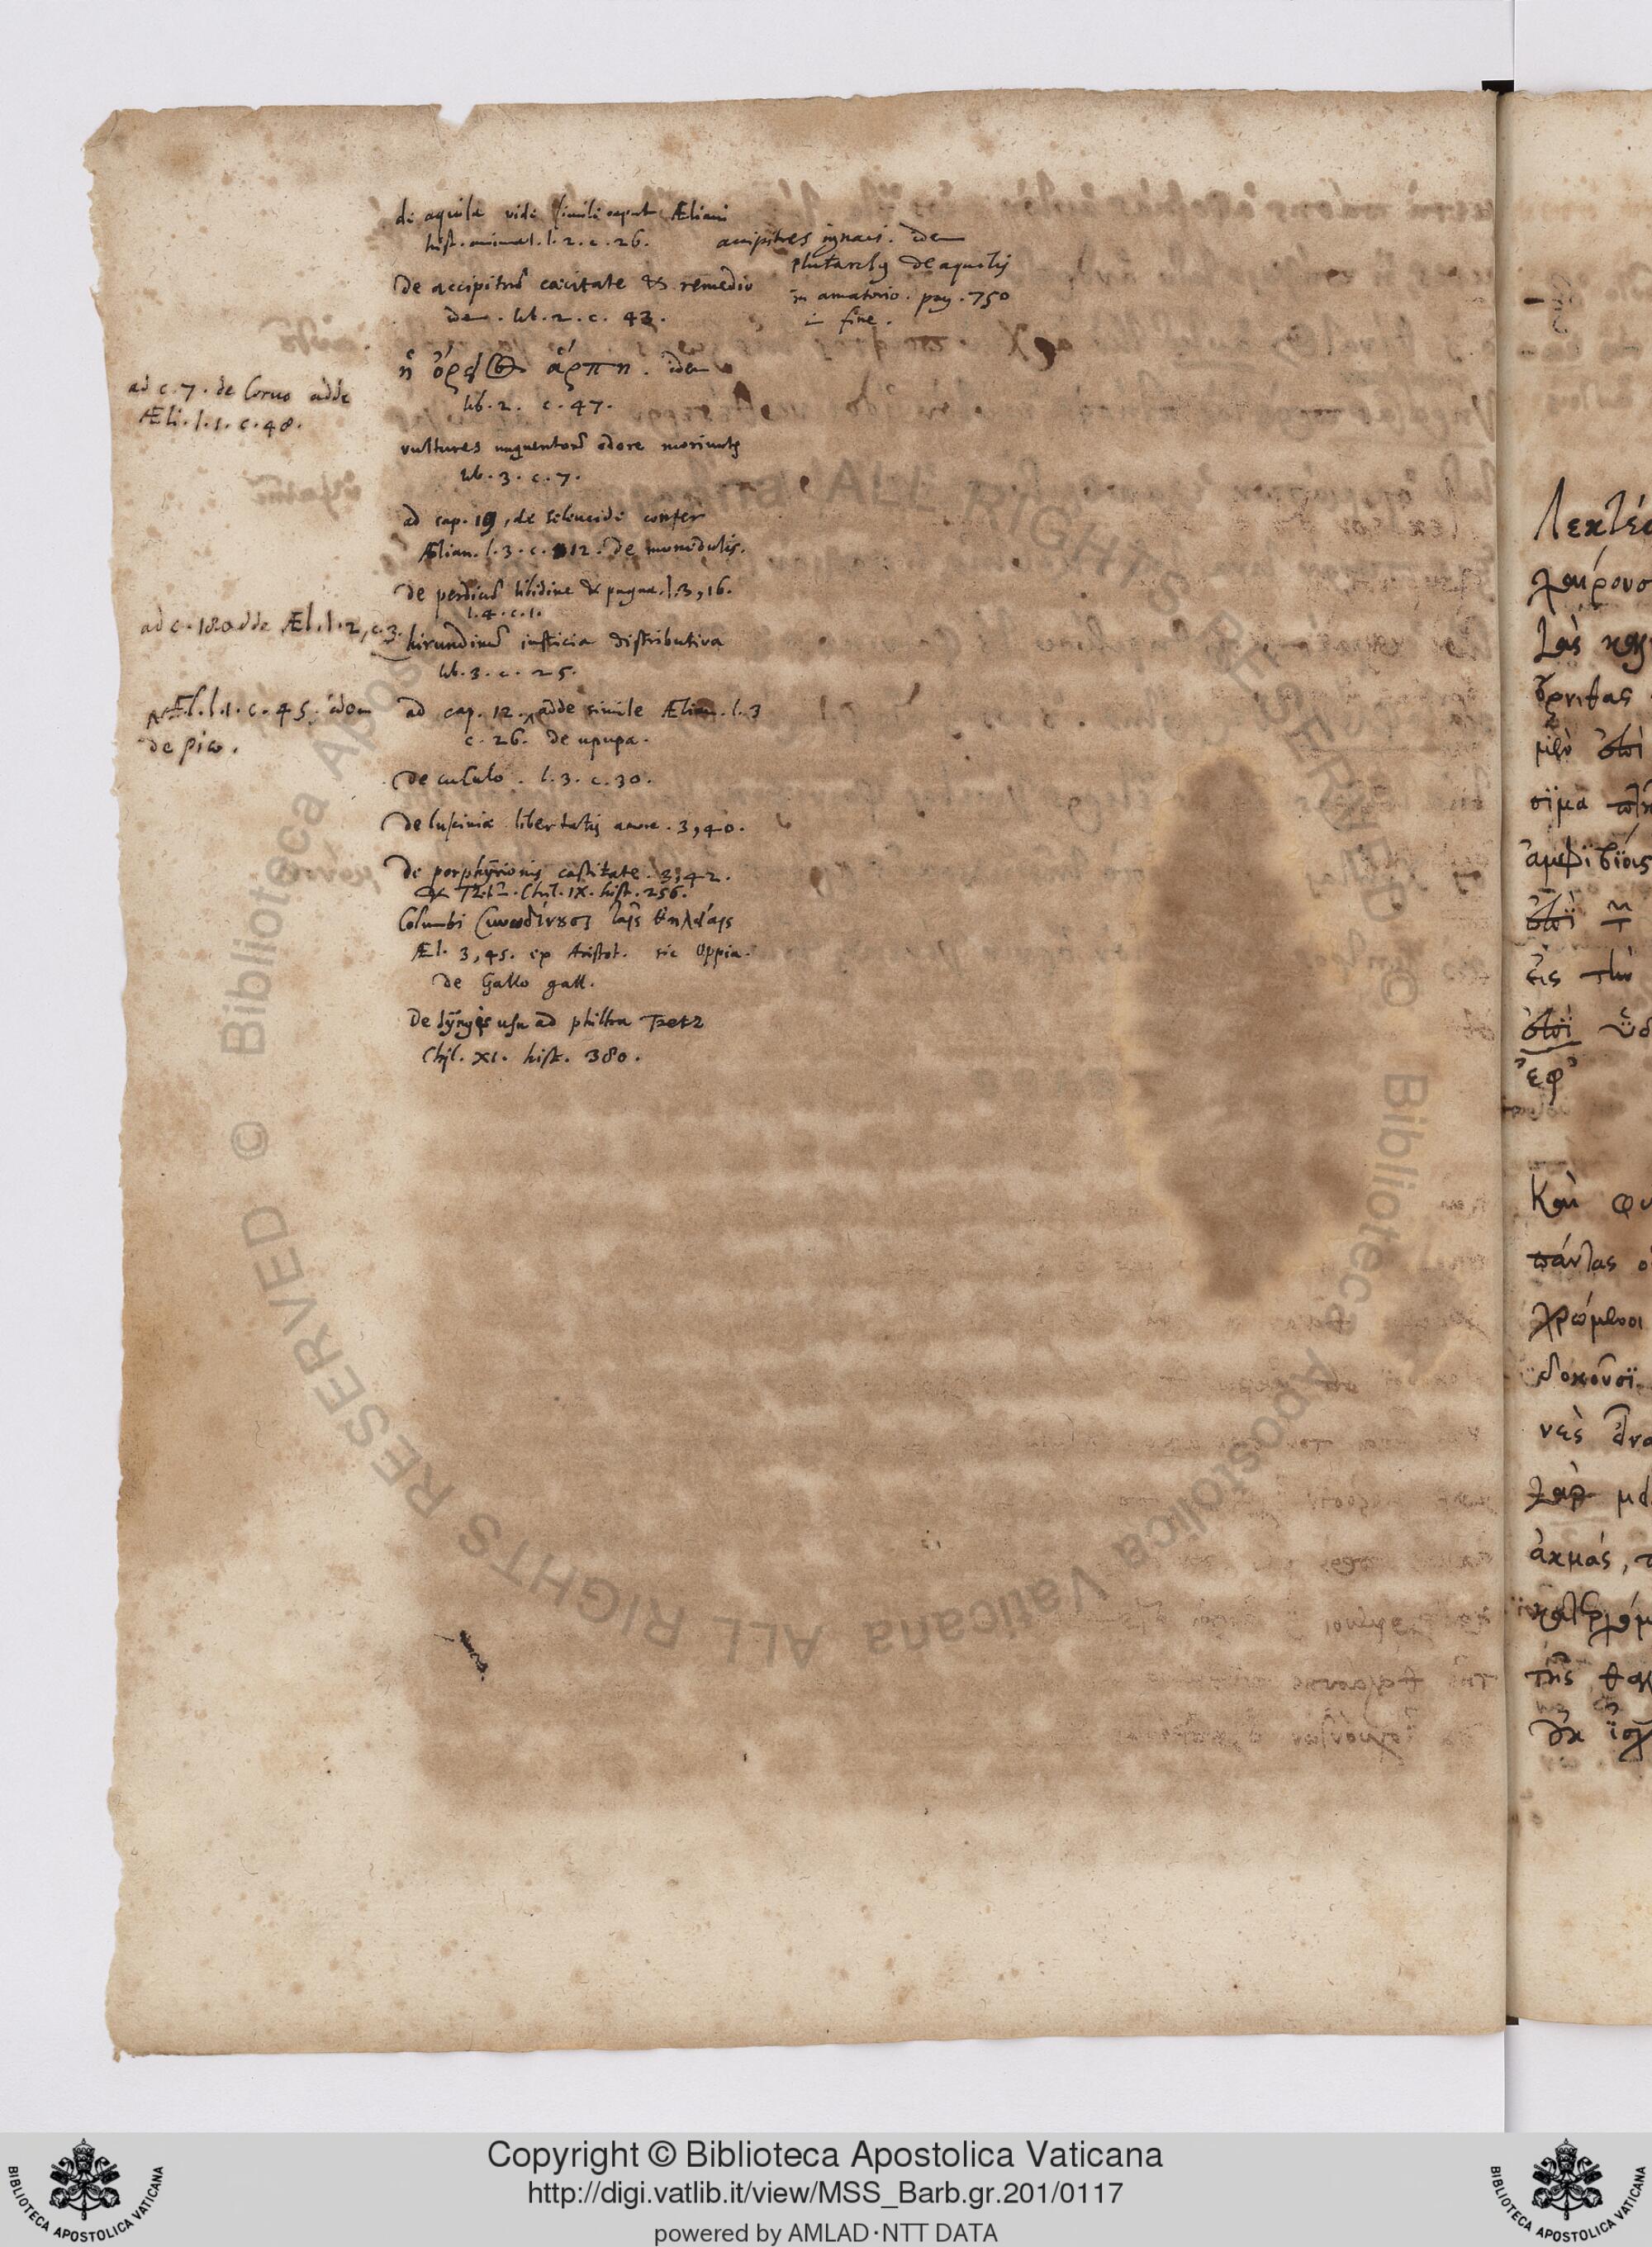 de aquila vide simile caput Æliani
hist. animal. l. 2. c. 26.
accipitres ignavi. idem
Plutarchus de aquilis
in amatorio. pag. 750
in fine.
De accipitrum cæcitate & remedio
idem. lib. 2. c. 43.
ἡ ὄρειος ἅρπη. idem
lib. 2. c. 47.
ad c. 7. de Corvo adde
Æli. l. 1. c. 48.
vultures unguentorum odore moriuntur
lib. 3. c. 7.
ad cap. 19, de seleucide confer
Ælian. l. 3. c. 12. De monedulis.
De perdicum libidine & pugna. l. 3, 16.
l. 4. c. 1.
ad c. 18 adde Æl. l. 2, c. 3.
hirundinum iusticia distributiva
lib. 3. c. 25.
Æl. l. 1. c. 45. idem
de pico.
ad cap. 12. adde simile Ælian. l. 3
c. 26. de upupa.
De cuculo. l. 3. c. 30.
De lusciniæ libertatis amore. 3, 40.
De porphyrionis castitate. 3, 42.
& Tzetz. Chil. IX. hist. 256.
Columbi συνωδίνουσι ταῖς θηλείαις
Æl. 3, 45. ex Aristot. sic Oppia.
de Gallo gall.
De Iyngis usu ad philtra Tzetz
Chil. XI. hist. 380.
Λεκτέο
χαίρουσ
τὰς
ὄρνιθας
μὲν ἐπὶ
σῖμα
ἀμφιβίοις
ἐπὶ
εἰς τὴν
ἐπὶ ὕδ
ἐφ'
Καὶ φυ
πάντας ο
χρώμενοι
δοκοῦσι
νεὺ
γὰρ
ἀκμάς, τ
τῆς θαλ
Copyright © Biblioteca Apostolica Vaticana
http://digi.vatlib.it/view/MSS_Barb.gr.201/0117
powered by AMLAD·NTT DATA
BIBLIOTECA APOSTOLICA VATICANA
BIBLIOTECA APOSTOLICA VATICANA
© Biblioteca Apostolica Vaticana ALL RIGHTS RESERVED
© Biblioteca Apostolica Vaticana ALL RIGHTS RESERVED